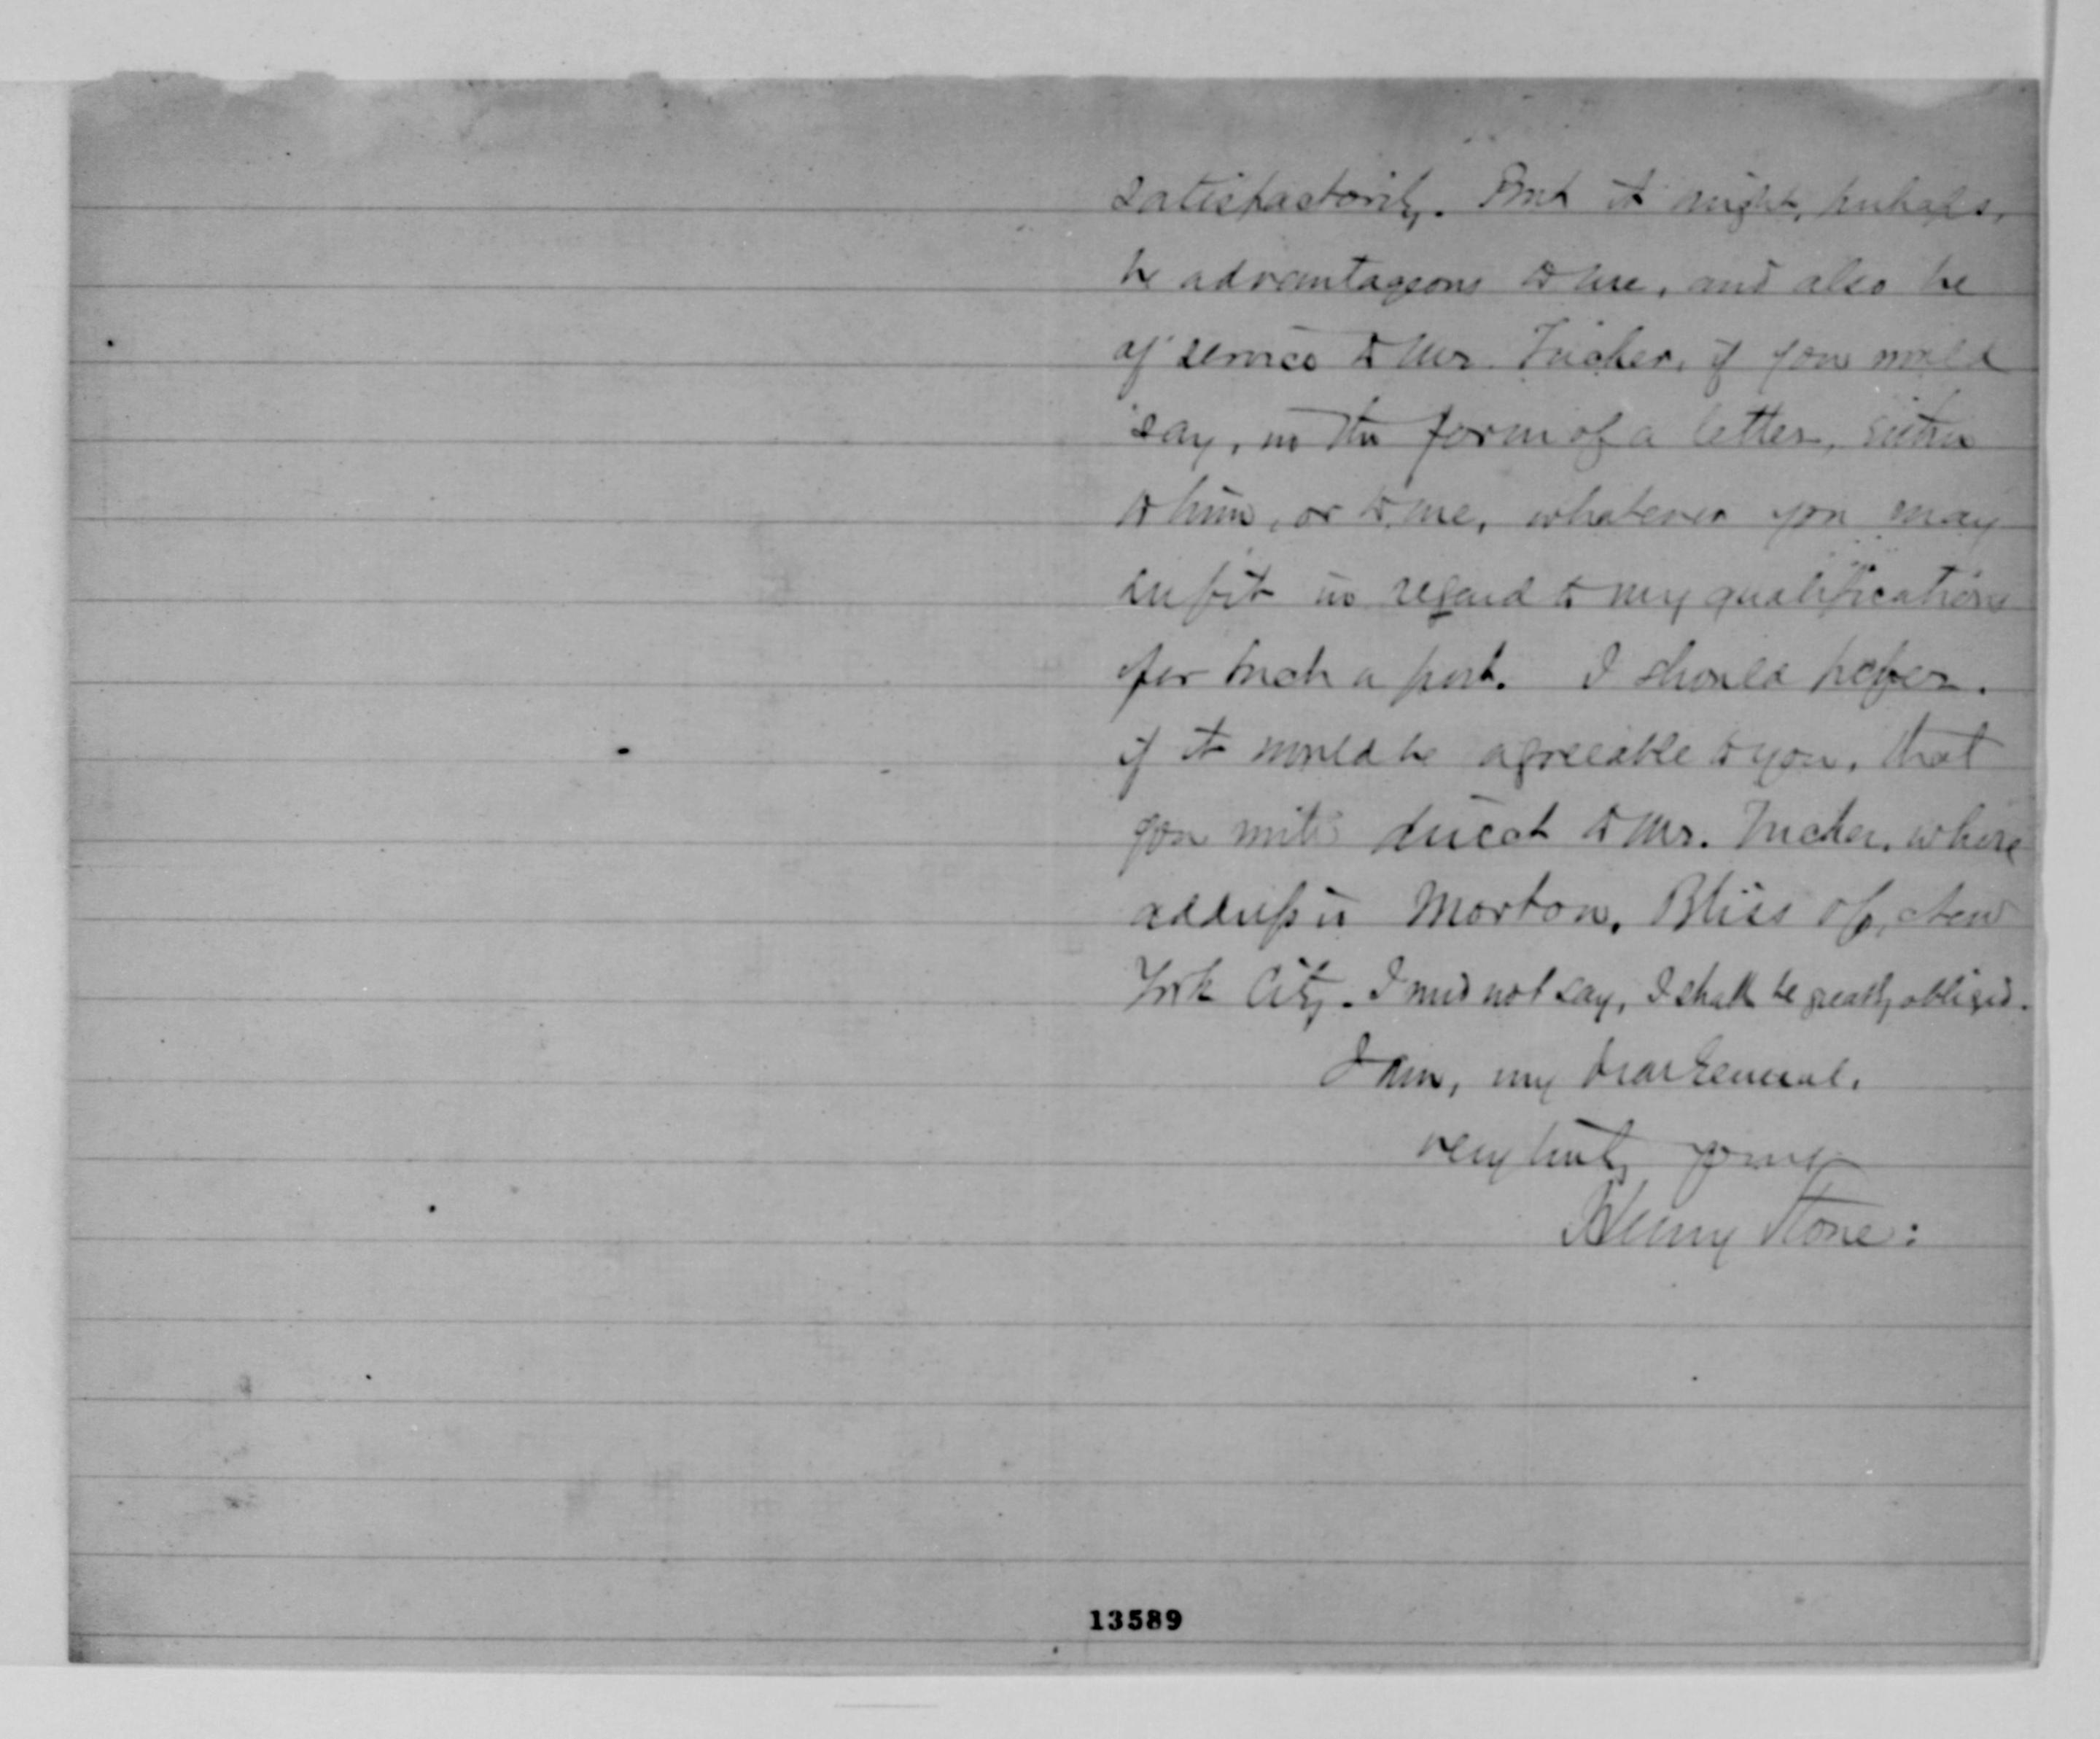 satisfactorily. But it might, perhaps,
be advantageous to me, and also be
of service to Mr. Tucker, if you would
say, in the form of a letter, either
to him, or to me, whatever you may
see fit in regard to my qualifications
for such a post. I should prefer,
if it would be agreeable to you, that
you write direct to Mr. Tucker, whose
address is Morton, Bliss & Co, New
York City. I need not say, I shall be greatly obliged.
I am, my dear General,
very truly yours
Henry Stone:
13589